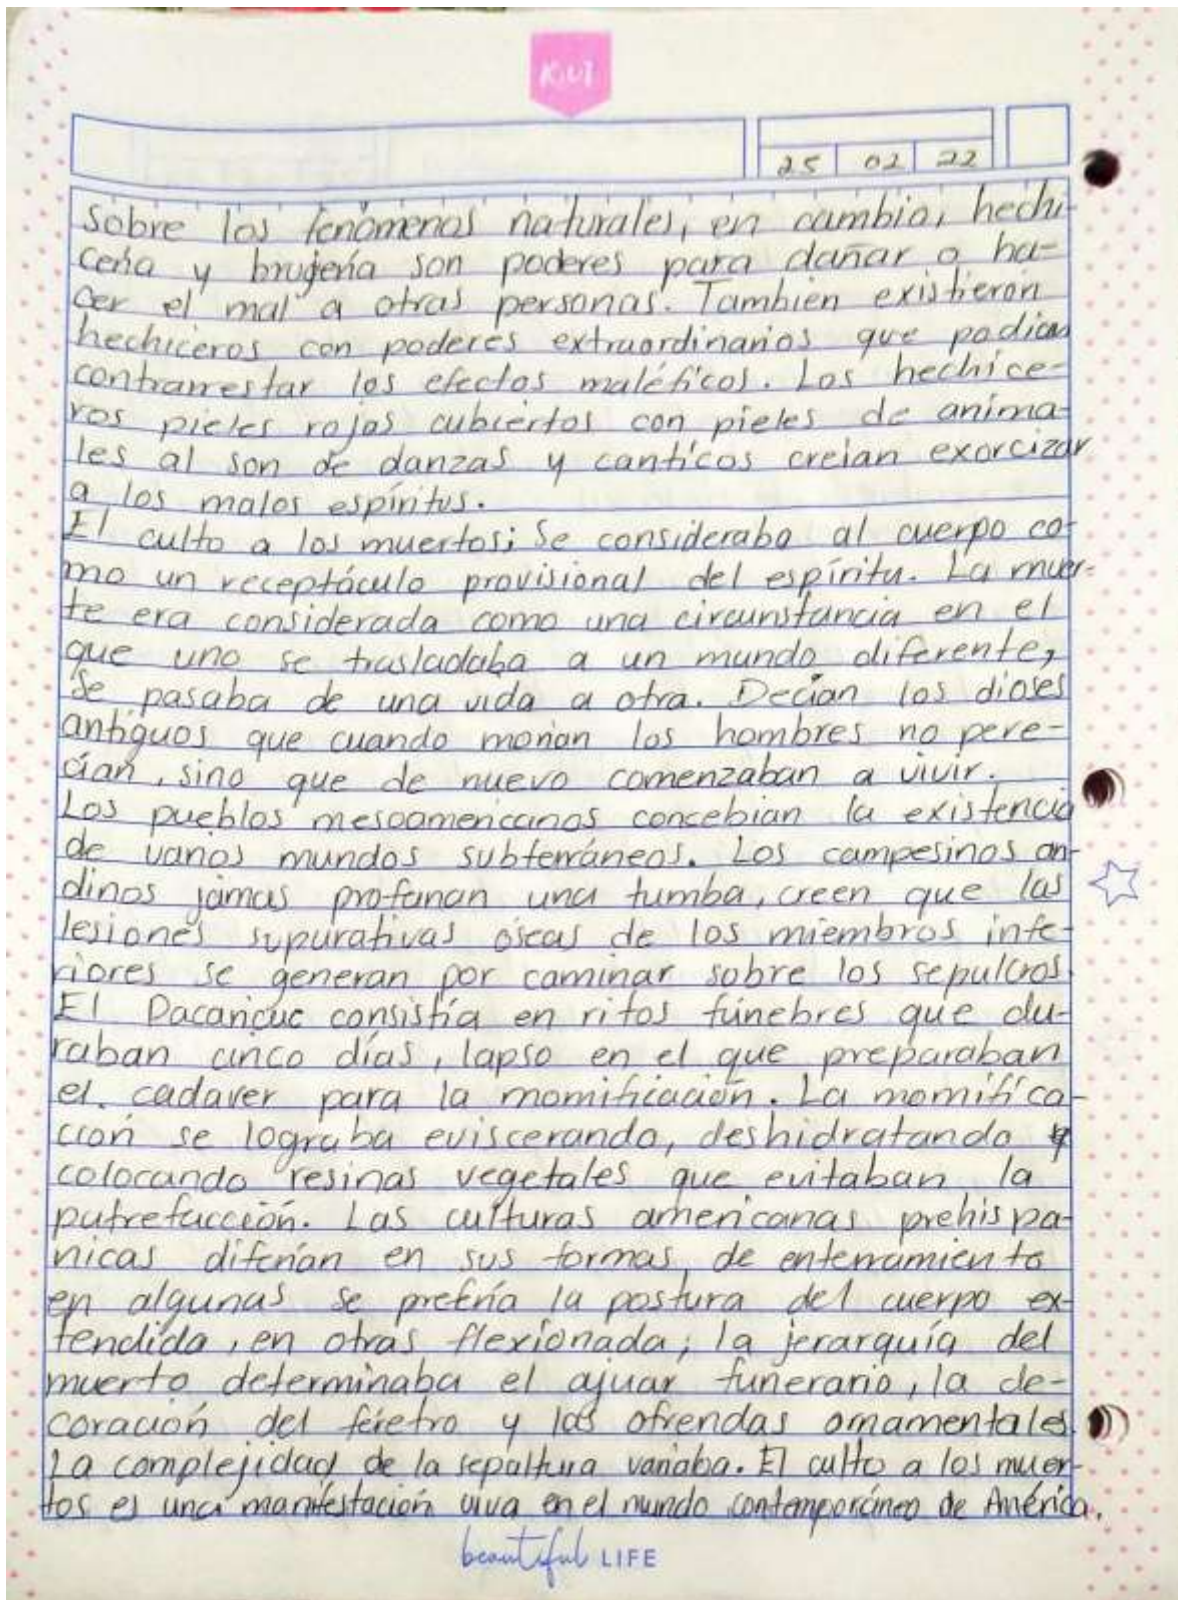 Kiut
25 02 22
sobre los fenómenos naturales, en cambio, hechi-
cería y brujería son poderes para dañar o ha-
cer el mal a otras personas. Tambien existieron
hechiceros con poderes extraordinarios que podian
contrarrestar los efectos maléficos. Los hechice-
ros pieles rojas cubiertos con pieles de anima-
les al son de danzas y canticos creian exorcizar
a los malos espíritus.
El culto a los muertos: Se consideraba al cuerpo co-
mo un receptáculo provisional del espíritu. La muer-
te era considerada como una circunstancia en el
que uno se trasladaba a un mundo diferente,
se pasaba de una vida a otra. Decian los dioses
antiguos que cuando morian los hombres no pere-
cian, sino que de nuevo comenzaban a vivir.
Los pueblos mesoamericanos concebian la existencia
de varios mundos subterráneos. Los campesinos an-
dinos jamas profanan una tumba, creen que las
lesiones supurativas óseas de los miembros infe-
riores se generan por caminar sobre los sepulcros.
El Pacaricuc consistía en ritos fúnebres que du-
raban cinco días, lapso en el que preparaban
el cadaver para la momificiación. La momifica-
ción se lograba eviscerando, deshidratando y
colocando resinas vegetales que evitaban la
putrefacción. Las culturas americanas prehispa-
nicas diferían en sus formas, de enterramiento
en algunas se prefería la postura del cuerpo ex-
tendida, en otras flexionada; la jerarquía del
muerto determinaba el ajuar funerario, la de-
coración del féretro y las ofrendas ornamentales.
La complejidad de la sepaltura variaba. El culto a los muer-
tos es una manifestación viva en el mundo contemporáneo de América.
beautiful LIFE